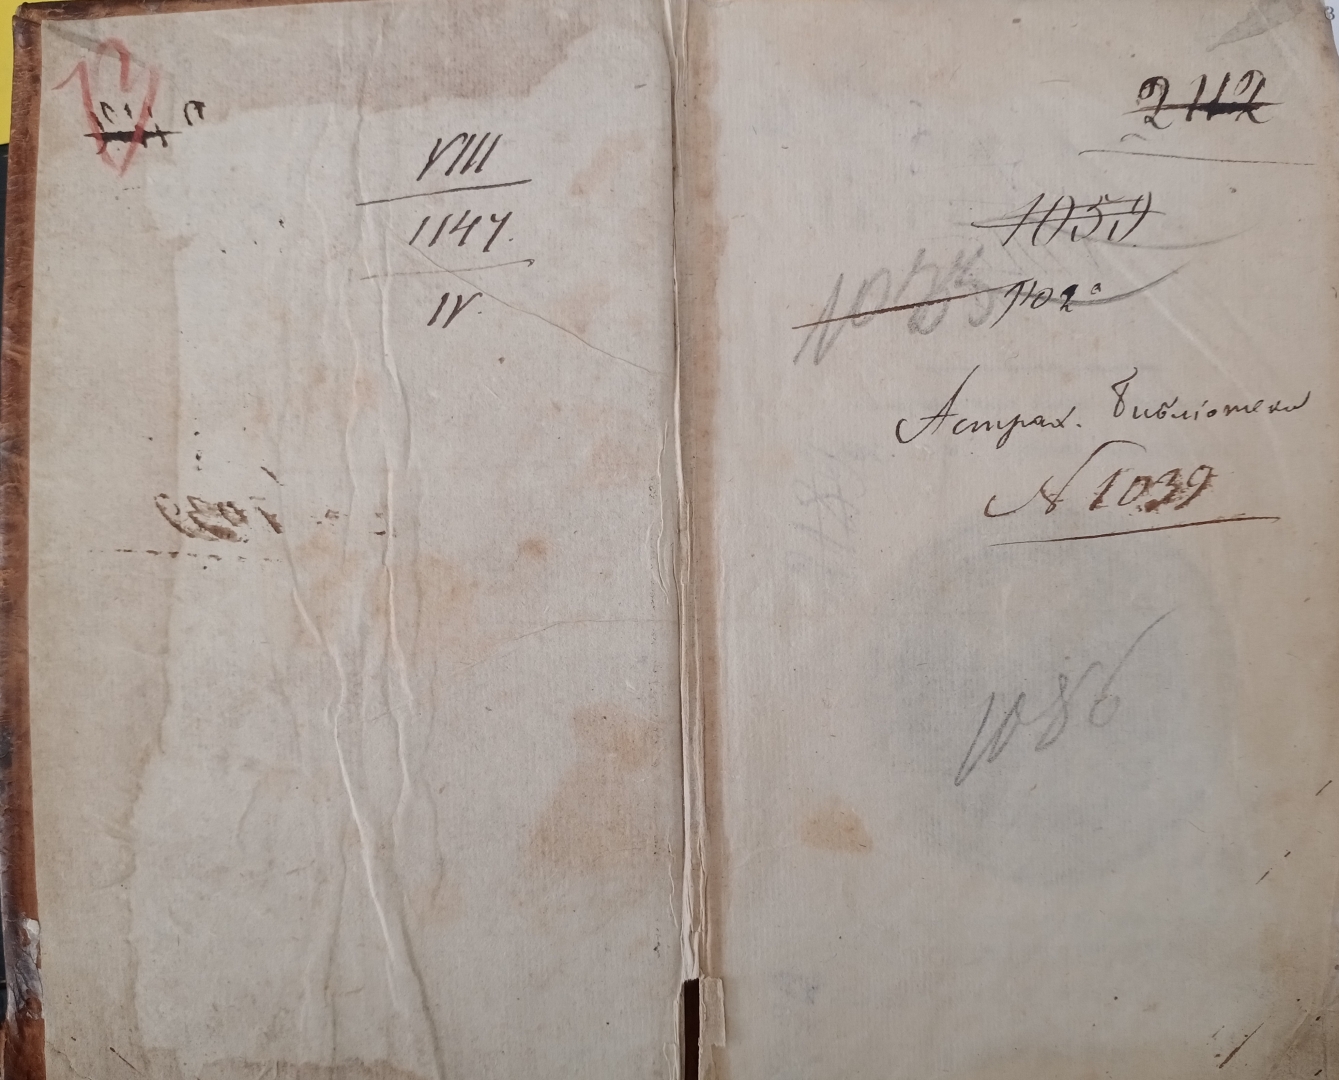 VIII
1147.
IV.
2112
1059
1033
1102ª
Астрах. Библіотеки
N 1039
1086